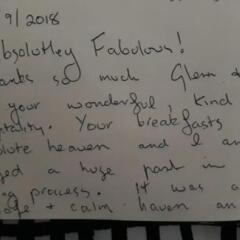 9/2018
bsolutley Fabulous!
anks so much Glenn &
your wonderful, kind
itality. Your breakfasts
olute heaven and I am
yed a huge part in
ng process. It was a
afe + calm haven an